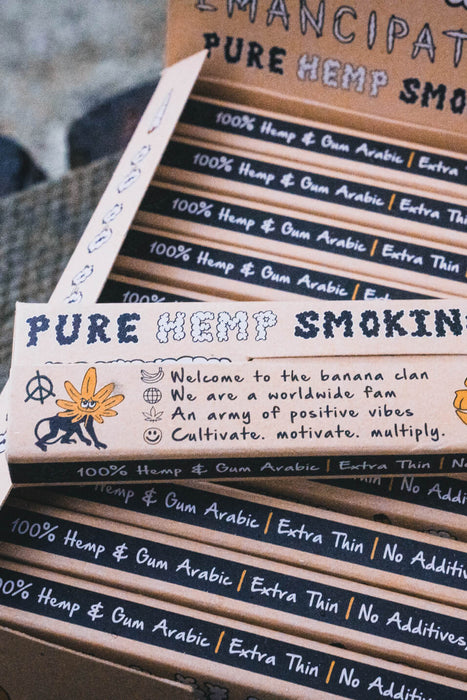 EMANCIPAT
PURE HEMP SMO
100% Hemp & Gum Arabic | Extra
100% Hemp & Gum Arabic | Extra Thin
100% Hemp & Gum Arabic | Extra Thin
100% Hemp & Gum Arabic | Extra
100%
PURE HEMP SMOKIN
Welcome to the banana clan
We are a worldwide fam
An army of positive vibes
Cultivate. motivate. multiply.
100% Hemp & Gum Arabic | Extra Thin | No
No Addi
100% Hemp & Gum Arabic | Extra Thin | No Additive
100% Hemp & Gum Arabic | Extra Thin | No Additives,
00% Hemp & Gum Arabic | Extra Thin | No Additi